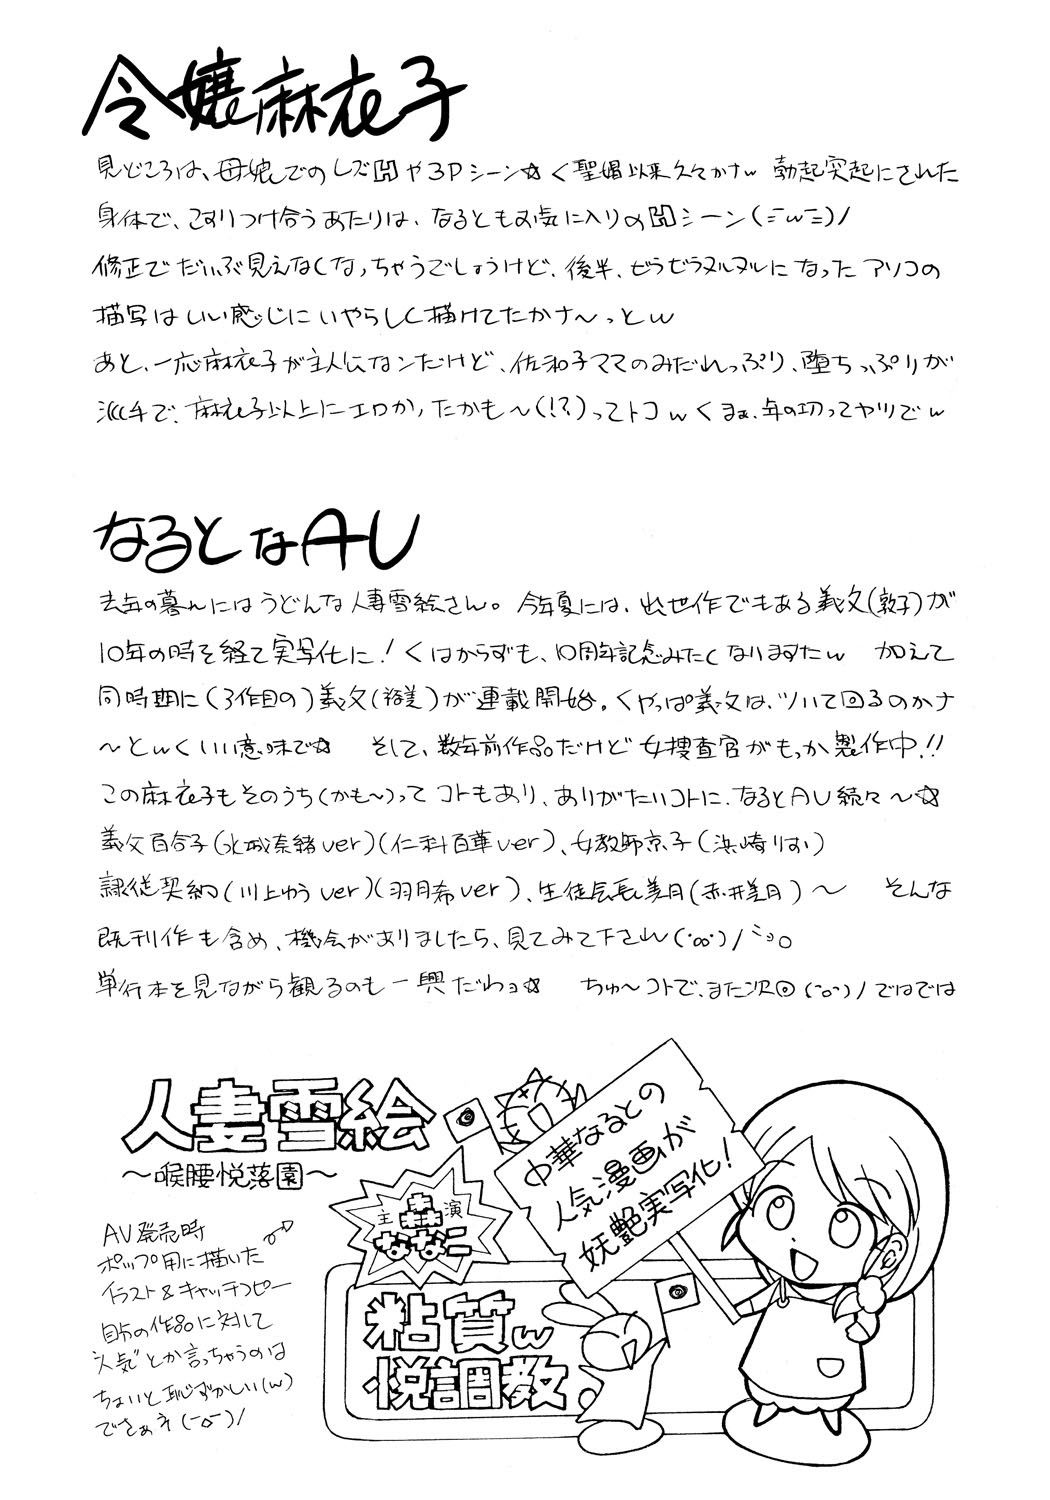 令嬢麻衣子
見どころは、母娘でのレズHや3Pシーン☆く聖娼以来久々かナw 勃起突起にされた
身体で、こすりつけ合うあたりは、なるともお気に入りのHシーン(ΞwΞ)/
修正でだいぶ見えなくなっちゃうでしょうけど、後半、ぜラぜラヌルヌルになったアソコの
描写はいい感じにいやらしく描けてたかナ〜っとw
あと、一応麻衣子が主人公なンだけど、佐和子ママのみだれっぷり、堕ちっぷりが
派手で、麻衣子以上にエロかったかも〜(!?)ってトコwくまぁ、年の功ってヤツでw
なるとなAV
去年の暮れにはうどんな人妻雪絵さん。今年夏には、出世作でもある義父(敦子)が
10年の時を経て実写化に!くはからずも、10周年記念みたくなりますたw 加えて
同時期に(3作目の)義父(裕美)が連載開始。くやっぱ義父は、ツいて回るのかナ
〜とwくいい意味で☆ そして、数年前作品だけど女捜査官がもっか製作中!!
この麻衣子もそのうち(かも〜)ってコトもあり、ありがたいコトに、なるとAV続々〜☆
義父百合子(北城奈緒ver)(仁科百華ver)、女教師京子(浜崎りお)
隷従契約(川上ゆうver)(羽月希ver)、生徒会長美月(赤井美月)〜 そんな
既刊作も含め、機会がありましたら、見てみて下さん(･ω･)/ﾐｮ。
単行本を見ながら観るのも一興だわョ☆ ちゅ〜コトで、また次回(-o-)/ではでは
人妻雪絵
〜喉腰悦落園〜
主演
ななこ
中華なるとの
人気漫画が
妖艶実写化!
AV発売時
ポップ用に描いた
イラスト&キャッチコピー
自分の作品に対して
"人気"とか言っちゃうのは
ちょいと恥ずかしい(w)
でさぁネ(-o-)/
粘質w
悦調教。